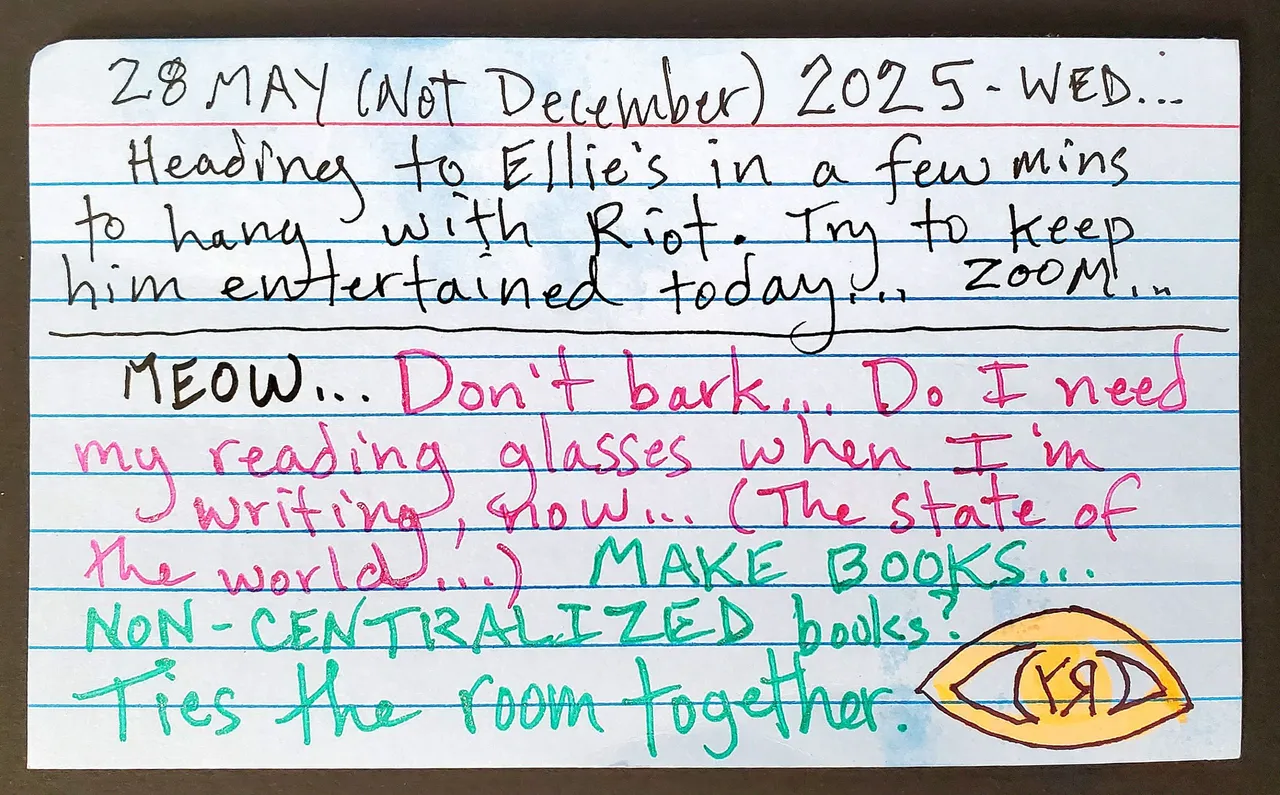 28 MAY (Not December) 2025 - WED...
Heading to Ellie's in a few mins
to hang with Riot. Try to keep
him entertained today... ZOOM...
MEOW... Don't bark... Do I need
my reading glasses when I'm
writing, now... (The state of
the world...) MAKE BOOKS...
NON-CENTRALIZED books?
Ties the room together.